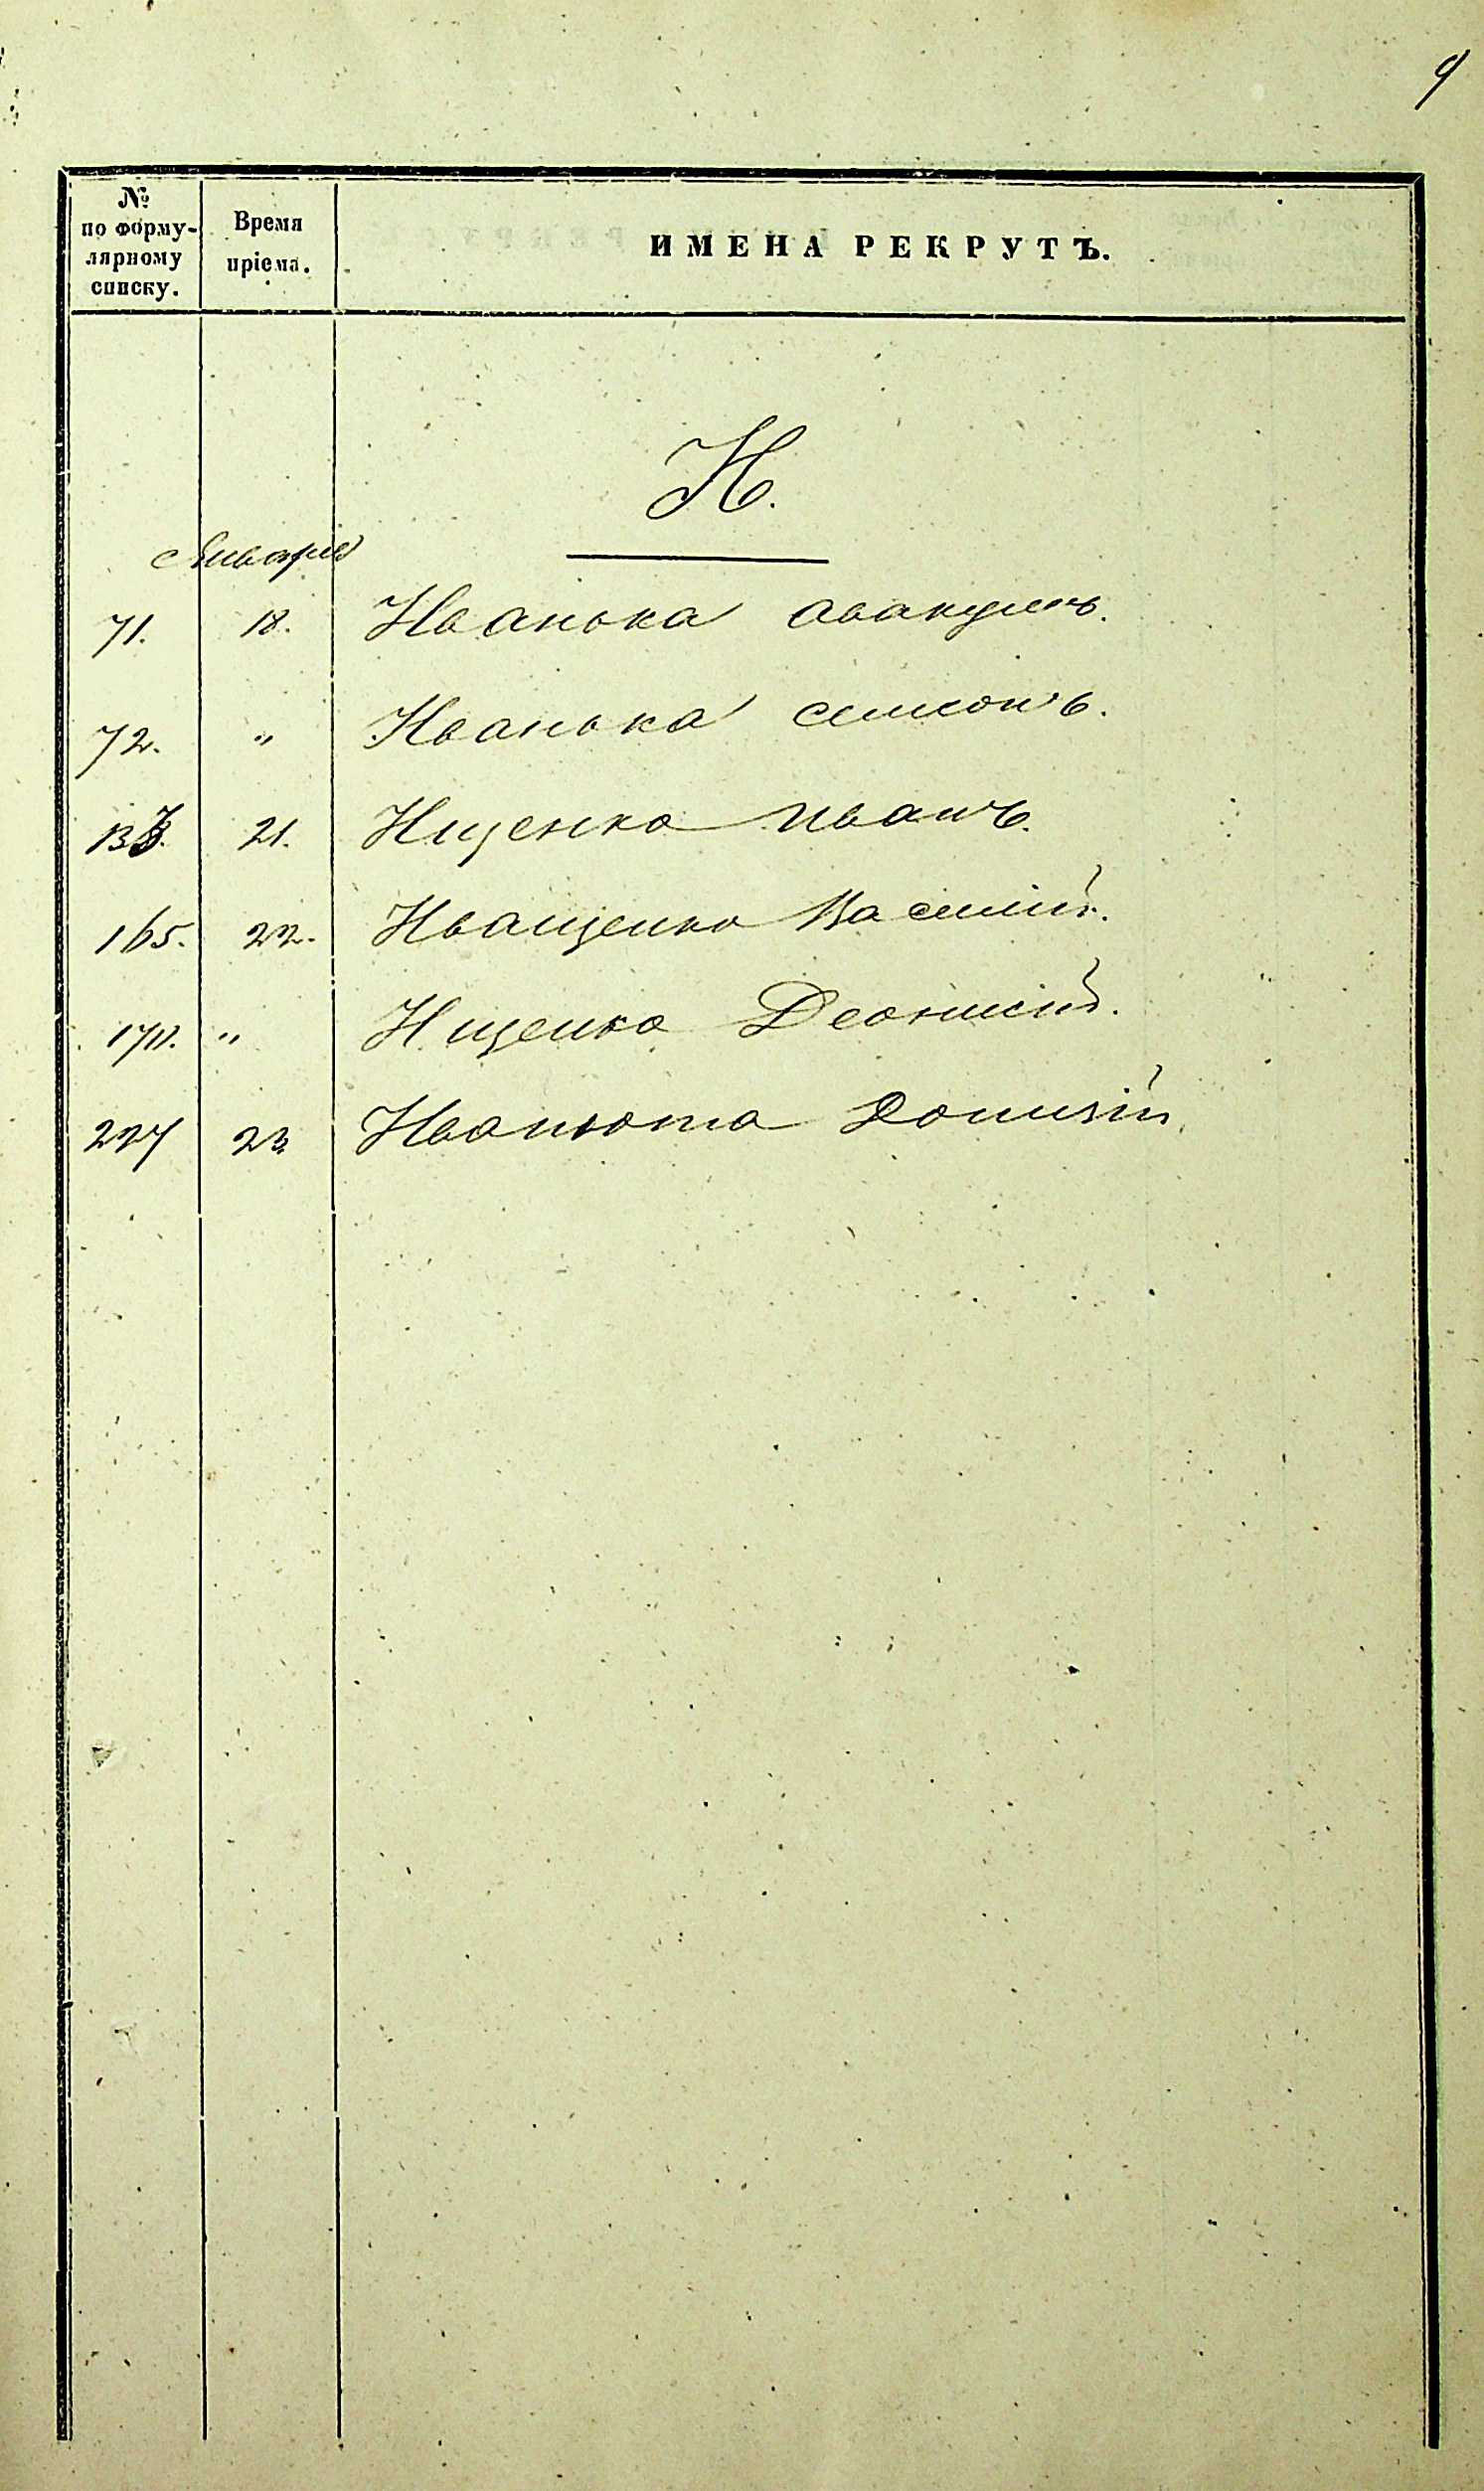 9
№ по форму-лярному списку.
Время пріема.
ИМЕНА РЕКРУТЪ.
И.
Января
71. 18. Иванька Авакумъ.
72. " Иванька Симонъ.
21. Ищенко Иванъ.
165. 22. Иващенко Василій.
" Ищенко Деонисій.
227 23 Иванюта Донисій